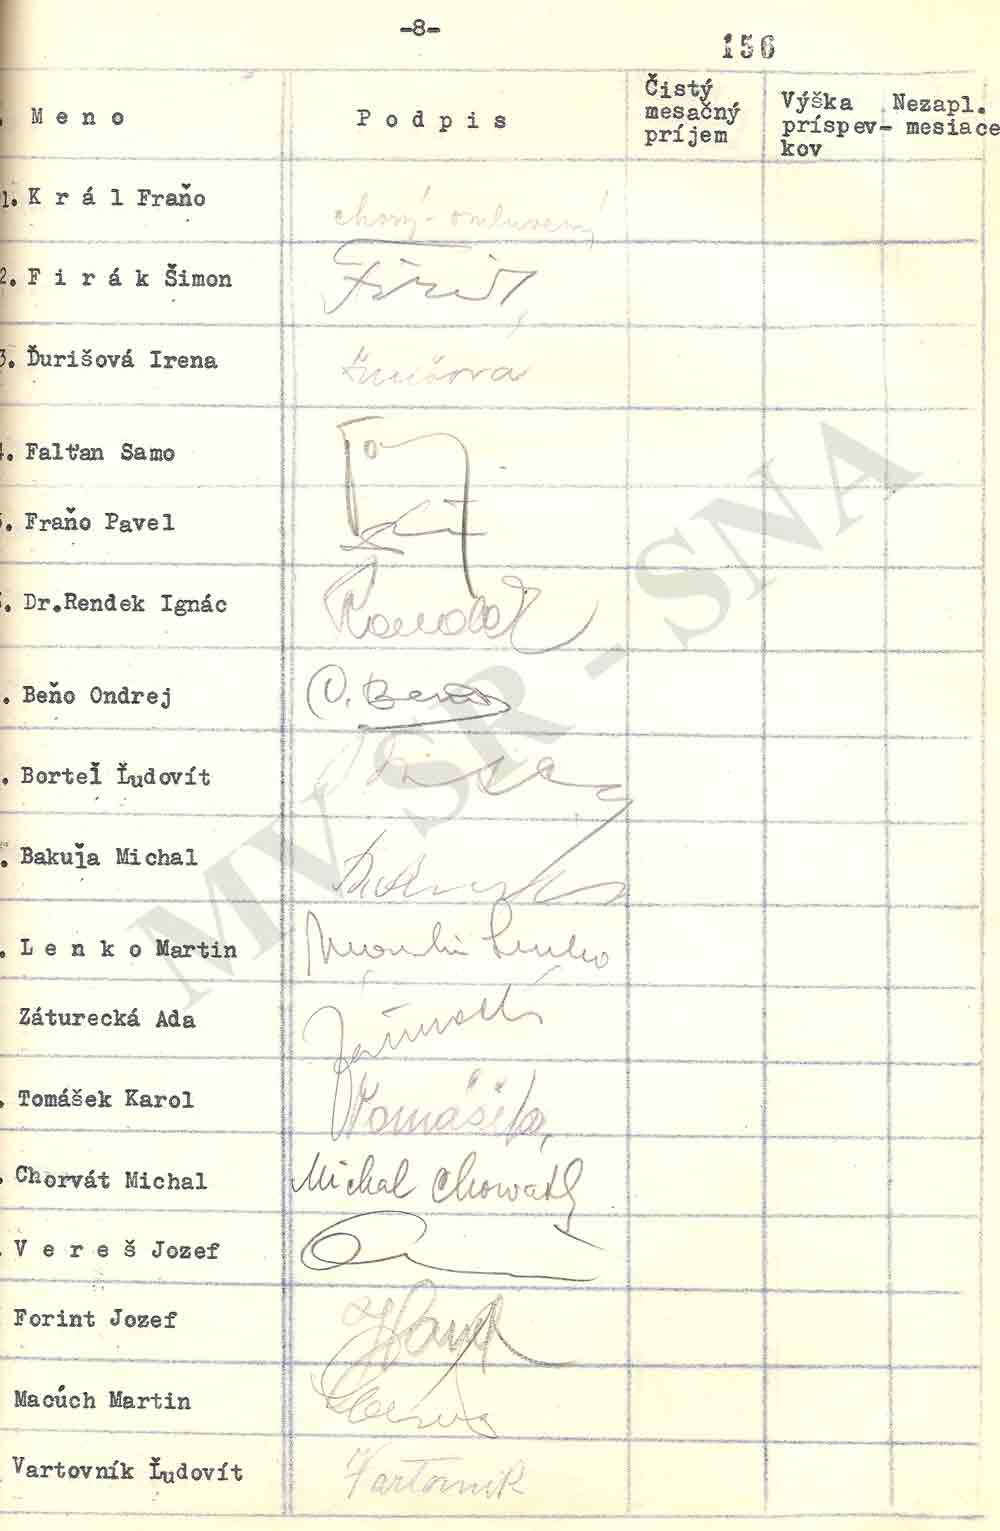 -8-
156
Meno
Podpis
Čistý
mesačný
príjem
Výška
príspev-
kov
Nezapl.
mesiace
1. Král Fraňo
chorý - omluvený
2. Firák Šimon
3. Ďurišová Irena
4. Falťan Samo
5. Fraňo Pavel
. Dr.Rendek Ignác
Rendek
. Beňo Ondrej
O. Beňo
. Borteľ Ľudovít
. Bakuľa Michal
. Lenko Martin
Martin Lenko
Záturecká Ada
. Tomášek Karol
Tomášek
. Chorvát Michal
Michal Chorváth
. Vereš Jozef
Forint Jozef
Macúch Martin
Vartovník Ľudovít
Vartovník
MV SR - SNA